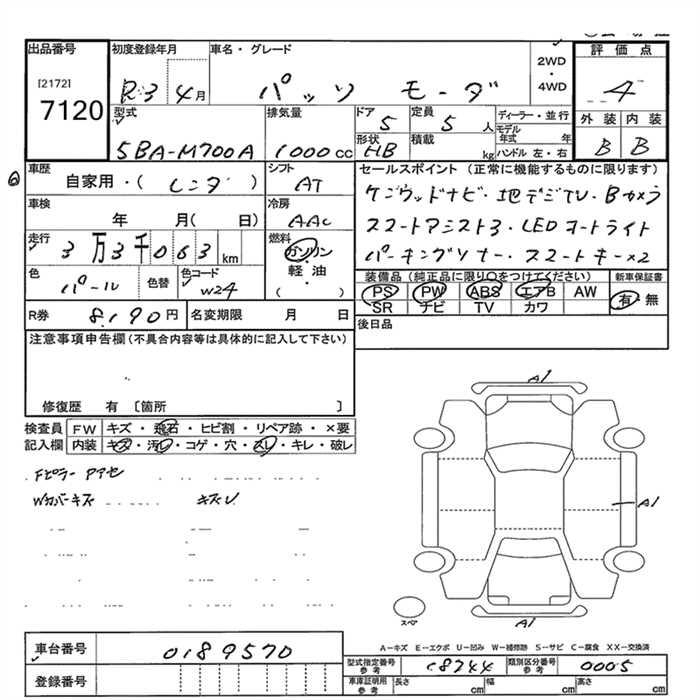 出品番号
[2172]
7120
初度登録年月
R:3 4月
車名・グレード
パッソ モーダ
2WD
・
4WD
評価点
4
外装 内装
B B
型式
5BA-M700A
排気量
1000cc
ドア
5
定員
5人
形状
HB
積載
kg
ディーラー・並行
モデル年式 年
ハンドル 左・右
車歴
自家用・( レンタ )
シフト
AT
セールスポイント (正常に機能するものに限ります)
ケンウッドナビ・地デジTV・Bカメラ
スマートアシスト3・LEDオートライト
パーキングソナー・スマートキー×2
車検
年 月( 日)
冷房
AAC
走行
3万3千063km
燃料
ガソリン
・
軽油
・
( )
色
パール
色替
色コード
W24
装備品(純正品に限り○をつけてください)
PS PW ABS エアB AW
SR ナビ TV カワ
新車保証書
有・無
R券
8.190円
名変期限 月 日
後日品
注意事項申告欄(不具合内容等は具体的に記入して下さい)
修復歴 有 〔箇所 〕
検査員記入欄
FW キズ・飛石・ヒビ割・リペア跡・×要
内装 キズ・汚レ・コゲ・穴・スレ・キレ・破レ
Fピラー アアセ
Wカバーキズ キズレ
A1
A1
A1
スペア
A-キズ E-エクボ U-凹み W-補修跡 S-サビ C-腐食 XX-交換済
車台番号
0189570
登録番号
型式指定番号
参考
18744
類別区分番号
参考
0005
車庫証明用
参考
長さ cm 幅 cm 高さ cm